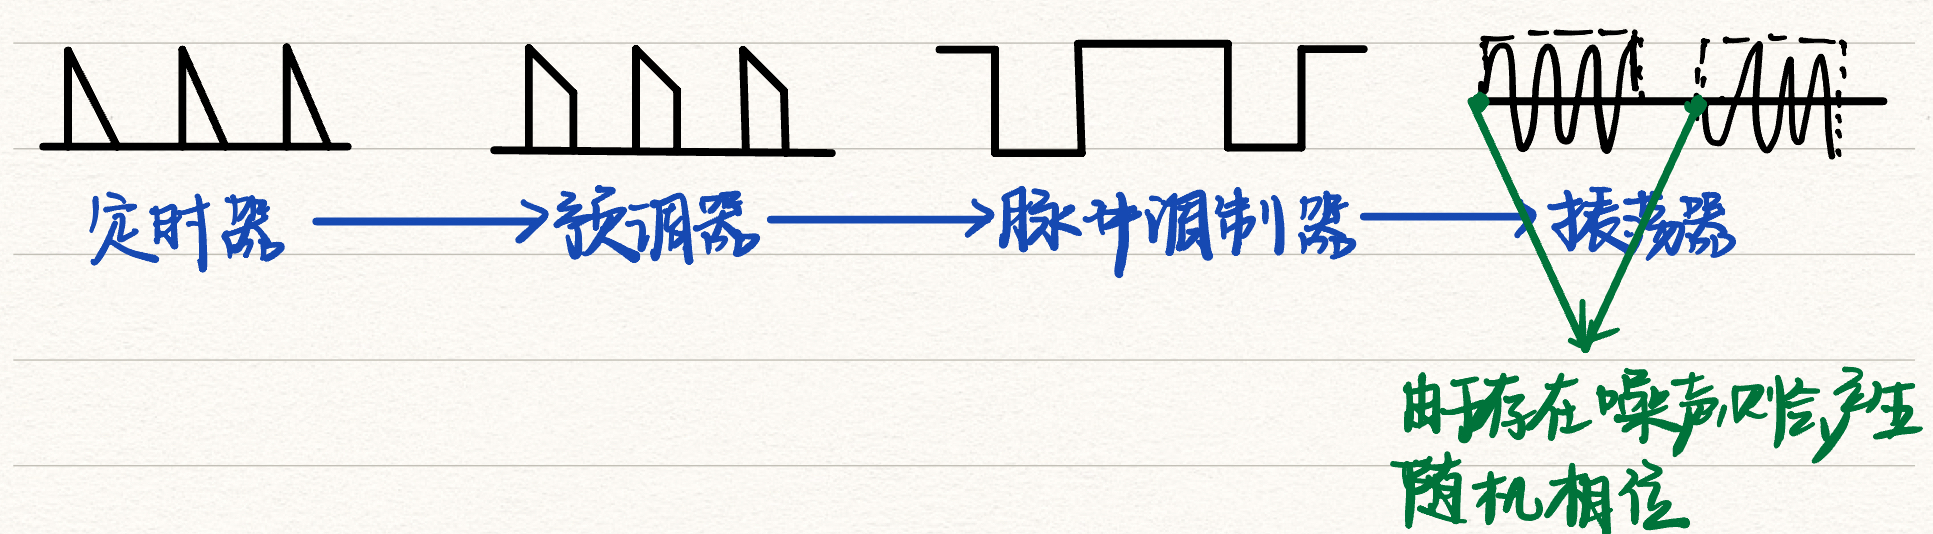 定时器 → 预调器 → 脉冲调制器 → 振荡器
由于存在噪声,则会产生
随机相位